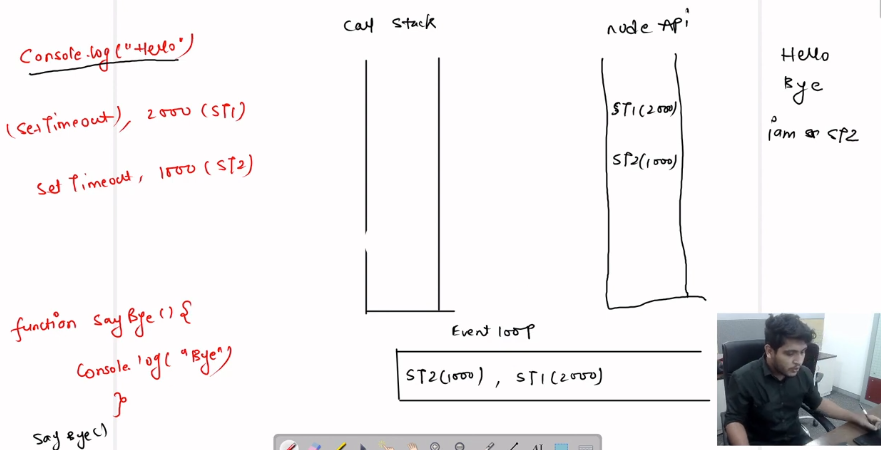 Console.log("Hello")
(SetTimeout), 2000 (ST1)
Set Timeout, 1000 (ST2)
function sayBye() {
Console.log("Bye")
}
Say Bye()
Call Stack
node API
ST1(2000)
ST2(1000)
Event loop
ST2(1000), ST1(2000)
Hello
Bye
iam ST2